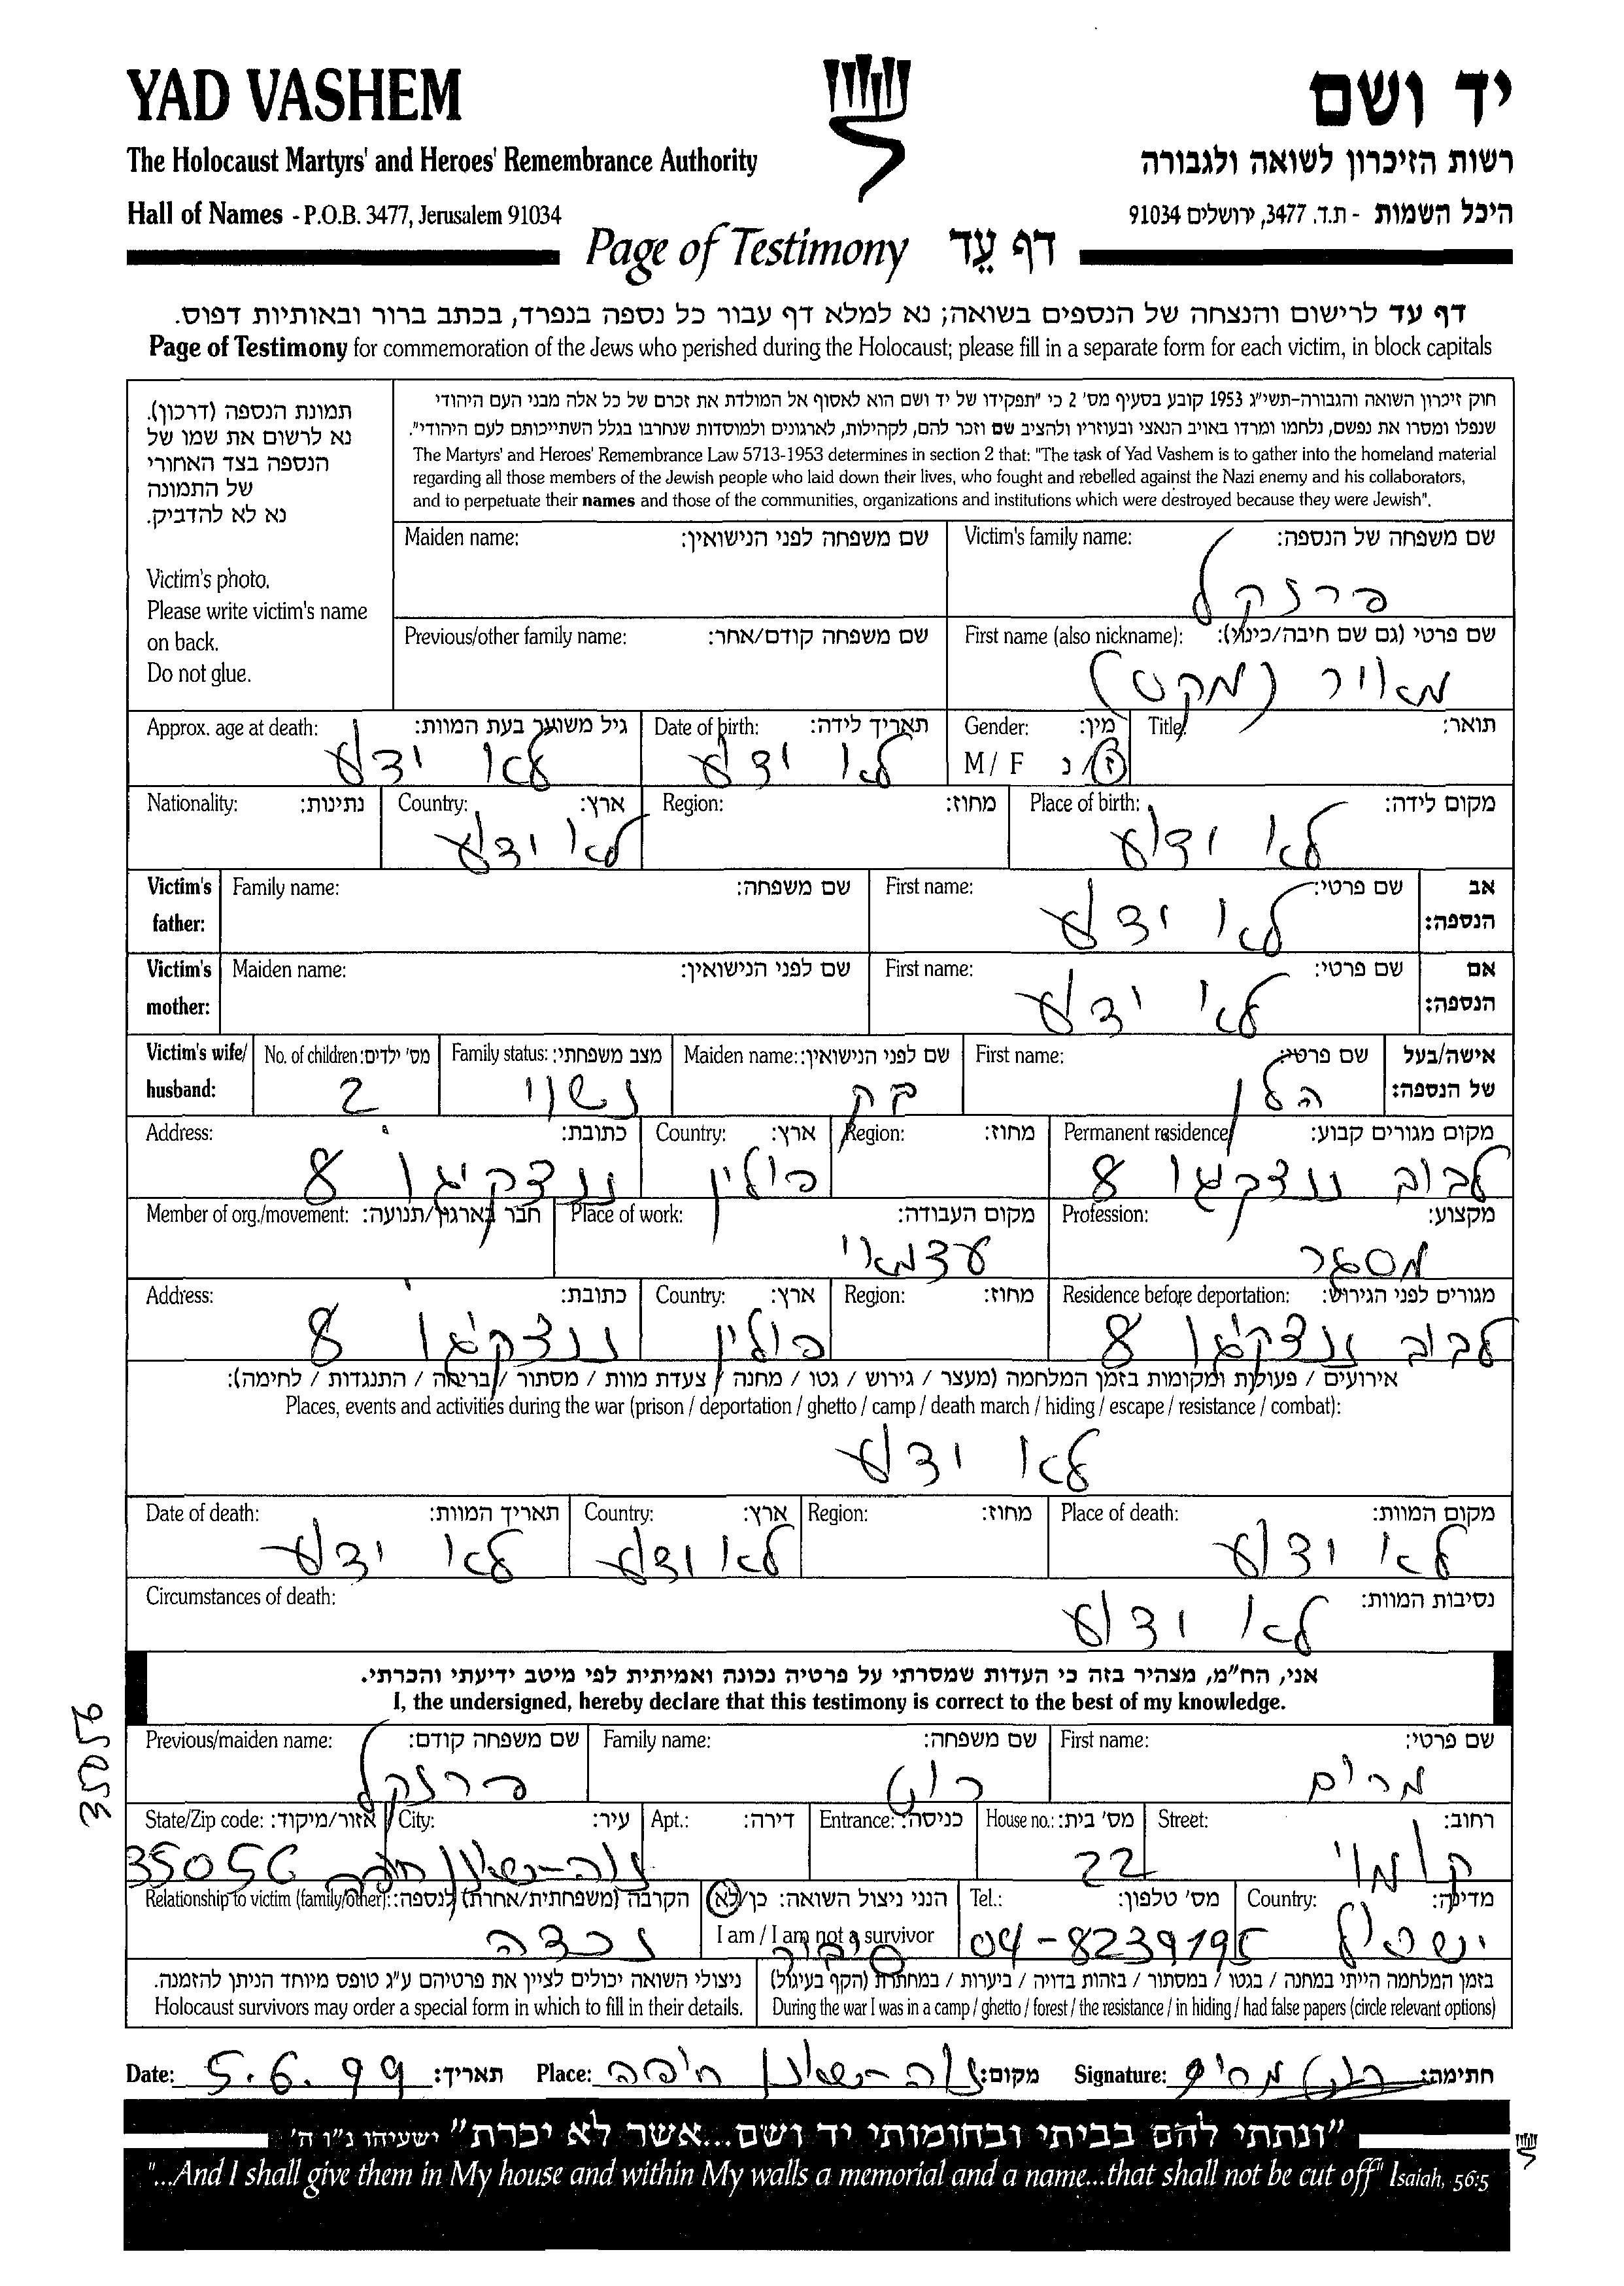 YAD VASHEM
יד ושם
The Holocaust Martyrs' and Heroes' Remembrance Authority
רשות הזיכרון לשואה ולגבורה
Hall of Names - P.O.B. 3477, Jerusalem 91034
היכל השמות - ת.ד. 3477, ירושלים 91034
Page of Testimony דף עֵד
דף עד לרישום והנצחה של הנספים בשואה; נא למלא דף עבור כל נספה בנפרד, בכתב ברור ובאותיות דפוס.
Page of Testimony for commemoration of the Jews who perished during the Holocaust; please fill in a separate form for each victim, in block capitals
תמונת הנספה (דרכון).
נא לרשום את שמו של
הנספה בצד האחורי
של התמונה
נא לא להדביק.
Victim's photo.
Please write victim's name
on back.
Do not glue.
חוק זיכרון השואה והגבורה-תשי"ג 1953 קובע בסעיף מס' 2 כי "תפקידו של יד ושם הוא לאסוף אל המולדת את זכרם של כל אלה מבני העם היהודי
שנפלו ומסרו את נפשם, נלחמו ומרדו באויב הנאצי ובעוזריו ולהציב שם וזכר להם, לקהילות, לארגונים ולמוסדות שנחרבו בגלל השתייכותם לעם היהודי".
The Martyrs' and Heroes' Remembrance Law 5713-1953 determines in section 2 that: "The task of Yad Vashem is to gather into the homeland material
regarding all those members of the Jewish people who laid down their lives, who fought and rebelled against the Nazi enemy and his collaborators,
and to perpetuate their names and those of the communities, organizations and institutions which were destroyed because they were Jewish".
Victim's family name: שם משפחה של הנספה:
פרנקל
Maiden name: שם משפחה לפני הנישואין:
First name (also nickname): שם פרטי (גם שם חיבה/כינוי):
מאיר (מקס)
Previous/other family name: שם משפחה קודם/אחר:
Title: תואר:
Gender: מין:
M / F ז/נ
Date of birth: תאריך לידה:
לא ידוע
Approx. age at death: גיל משוער בעת המוות:
לא ידוע
Place of birth: מקום לידה:
לא ידוע
Region: מחוז:
Country: ארץ:
לא ידוע
Nationality: נתינות:
Victim's father: אב הנספה:
First name: שם פרטי:
לא ידוע
Family name: שם משפחה:
Victim's mother: אם הנספה:
First name: שם פרטי:
לא ידוע
Maiden name: שם לפני הנישואין:
Victim's wife/husband: אישה/בעל של הנספה:
First name: שם פרטי:
הלן
Maiden name: שם לפני הנישואין:
בק
Family status: מצב משפחתי:
נשוי
No. of children: מס' ילדים:
2
Permanent residence: מקום מגורים קבוע:
לבוב 8
Region: מחוז:
Country: ארץ:
פולין
Address: כתובת:
8
Profession: מקצוע:
מסגר
Place of work: מקום העבודה:
עצמאי
Member of org./movement: חבר בארגון/תנועה:
Residence before deportation: מגורים לפני הגירוש:
לבוב 8
Region: מחוז:
Country: ארץ:
פולין
Address: כתובת:
8
אירועים / פעולות ומקומות בזמן המלחמה (מעצר / גירוש / גטו / מחנה / צעדת מוות / מסתור / בריחה / התנגדות / לחימה):
Places, events and activities during the war (prison / deportation / ghetto / camp / death march / hiding / escape / resistance / combat):
לא ידוע
Place of death: מקום המוות:
לא ידוע
Region: מחוז:
Country: ארץ:
לא ידוע
Date of death: תאריך המוות:
לא ידוע
Circumstances of death: נסיבות המוות:
לא ידוע
אני, הח"מ, מצהיר בזה כי העדות שמסרתי על פרטיה נכונה ואמיתית לפי מיטב ידיעתי והכרתי.
I, the undersigned, hereby declare that this testimony is correct to the best of my knowledge.
35056
First name: שם פרטי:
מרים
Family name: שם משפחה:
רוט
Previous/maiden name: שם משפחה קודם:
פרנקל
Street: רחוב:
House no.: מס' בית:
22
Entrance: כניסה:
Apt.: דירה:
City: עיר:
נוה-שאנן חיפה
State/Zip code: אזור/מיקוד:
35056
Country: מדינה:
ישראל
Tel.: מס' טלפון:
04-8239195
הנני ניצול השואה: כן/לא
I am / I am not a survivor
Relationship to victim (family/other): הקרבה (משפחתית/אחרת) לנספה:
נכדה
בזמן המלחמה הייתי במחנה / בגטו / במסתור / בזהות בדויה / ביערות / במחתרת (הקף בעיגול)
During the war I was in a camp / ghetto / forest / the resistance / in hiding / had false papers (circle relevant options)
ניצולי השואה יכולים לציין את פרטיהם ע"ג טופס מיוחד הניתן להזמנה.
Holocaust survivors may order a special form in which to fill in their details.
Date: 5.6.99 תאריך: Place: נוה-שאנן חיפה מקום: Signature: רוט מרים חתימה:
"ונתתי להם בביתי ובחומותי יד ושם...אשר לא יכרת" ישעיהו נ"ו ה'
"...And I shall give them in My house and within My walls a memorial and a name...that shall not be cut off" Isaiah, 56:5